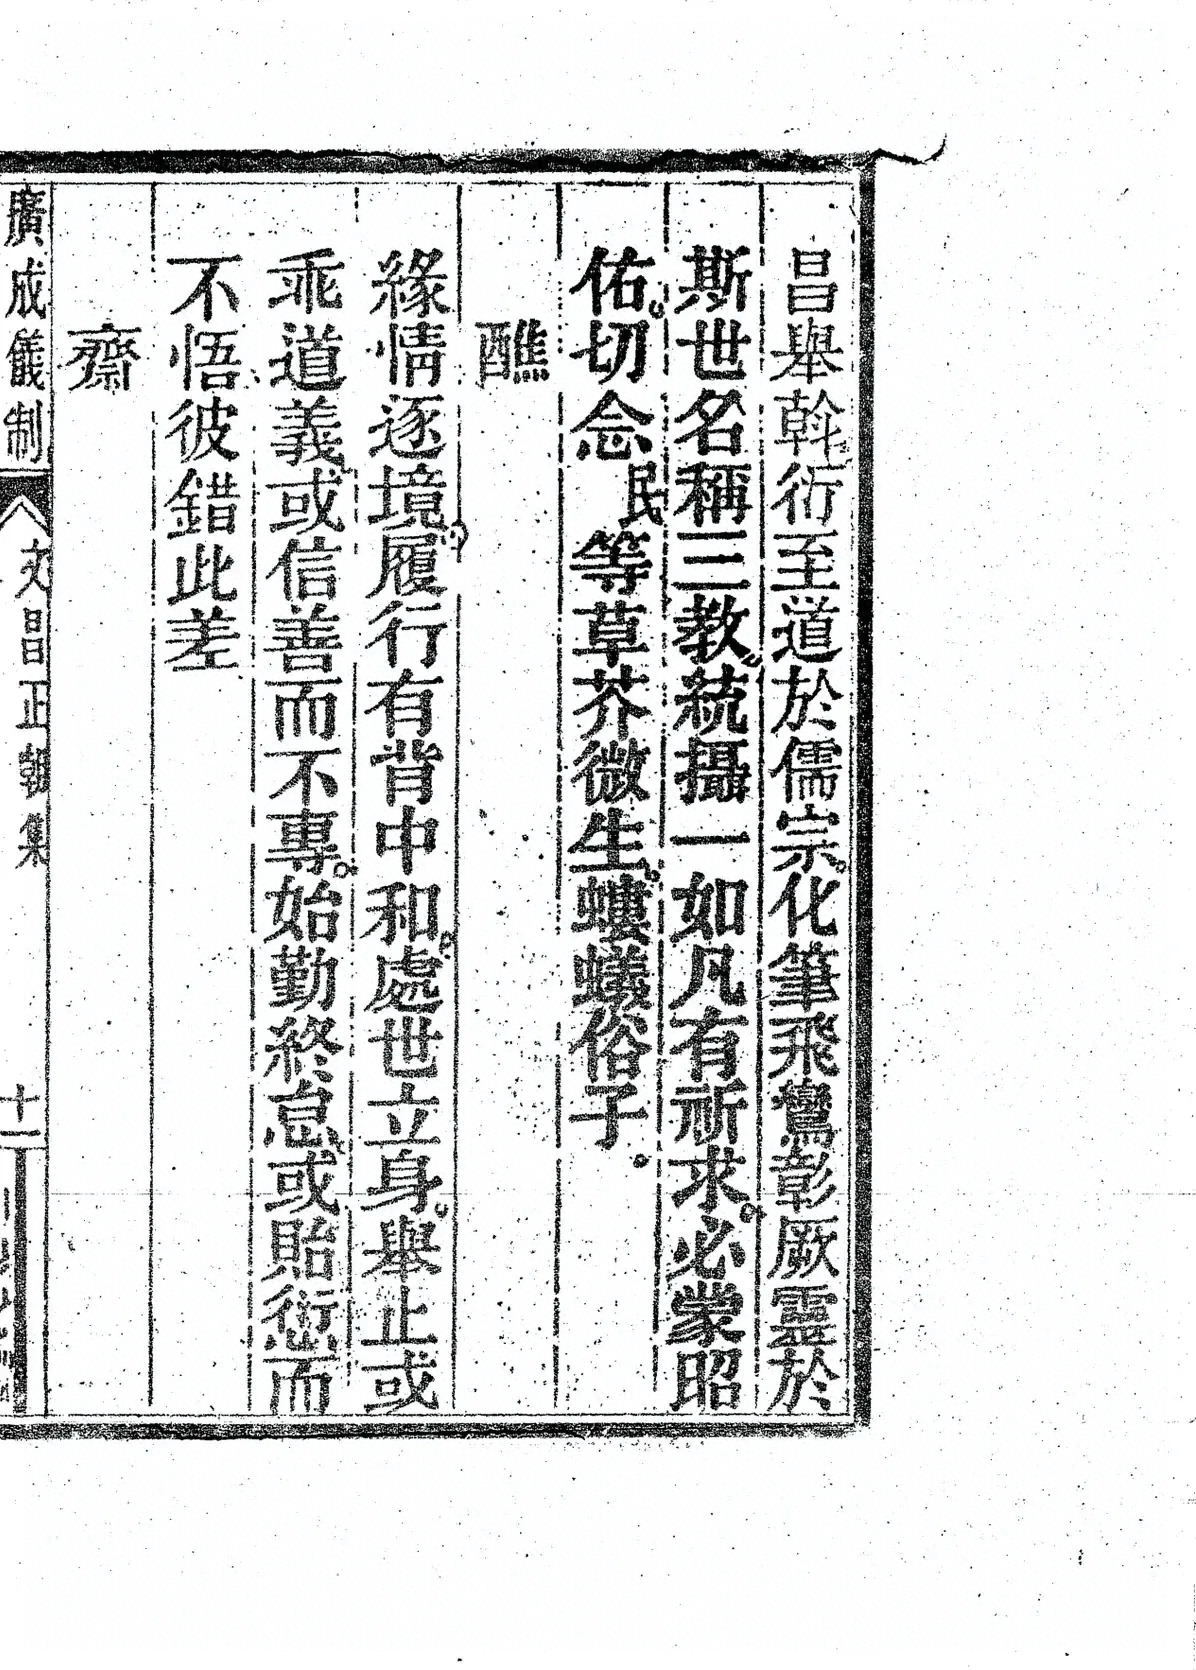 昌舉斡衍至道於儒宗化筆飛鸞彰厥靈於
斯世名稱三教統攝一如凡有祈求必蒙昭
佑切念民等草芥微生螻蟻俗子
醮
緣情逐境履行有背中和處世立身舉止或
乖道義或信善而不專始勤終怠或貽愆而
不悟彼錯此差
齋
廣成儀制 文昌正朝集 十一